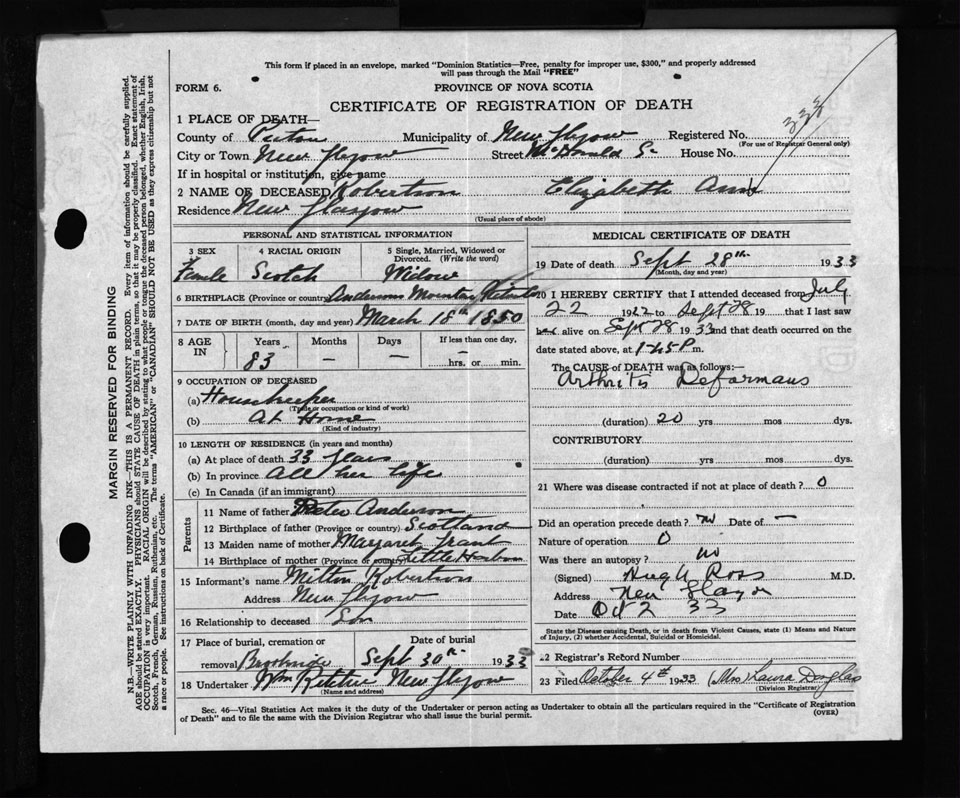 This form if placed in an envelope, marked "Dominion Statistics—Free, penalty for improper use, $300," and properly addressed
will pass through the Mail "FREE"
FORM 6.
PROVINCE OF NOVA SCOTIA
CERTIFICATE OF REGISTRATION OF DEATH
1 PLACE OF DEATH—
County of Pictou Municipality of New Glasgow Registered No.
(For use of Registrar General only)
City or Town New Glasgow Street McDonald St House No.
If in hospital or institution, give name
2 NAME OF DECEASED Robertson Elizabeth Ann
Residence New Glasgow
(Usual place of abode)
PERSONAL AND STATISTICAL INFORMATION
3 SEX 4 RACIAL ORIGIN 5 Single, Married, Widowed or Divorced. (Write the word)
Female Scotch Widow
6 BIRTHPLACE (Province or country) Andersons Mountain
7 DATE OF BIRTH (month, day and year) March 18th 1850
8 AGE IN Years Months Days If less than one day,
83 — — — hrs. or min.
9 OCCUPATION OF DECEASED
(a) Housekeeper
(Trade or occupation or kind of work)
(b) At Home
(Kind of industry)
10 LENGTH OF RESIDENCE (in years and months)
(a) At place of death 33 years
(b) In province All her life
(c) In Canada (if an immigrant)
Parents
11 Name of father Peter Anderson
12 Birthplace of father (Province or country) Scotland
13 Maiden name of mother Margaret
14 Birthplace of mother (Province or country) Little Harbour
15 Informant's name Milton Robertson
Address New Glasgow
16 Relationship to deceased Son
17 Place of burial, cremation or Date of burial
removal Brookside Sept 30th 1933
18 Undertaker Wm Ritchie New Glasgow
(Name and address)
MEDICAL CERTIFICATE OF DEATH
19 Date of death Sept 28th 1933
(Month, day and year)
20 I HEREBY CERTIFY that I attended deceased from July
22 19 to Sept 28 19 that I last saw
alive on Sept 28 1933 and that death occurred on
date stated above, at 1-45 P m.
The CAUSE OF DEATH was as follows:—
Arthritis Deformans
(duration) 20 yrs mos dys.
CONTRIBUTORY
(duration) yrs mos dys.
21 Where was disease contracted if not at place of death? 0
Did an operation precede death? no Date of —
Nature of operation 0
Was there an autopsy? no
(Signed) Hugh Ross M.D.
Address New Glasgow
Date Oct 2 33
State the Disease causing Death, or in death from Violent Causes, state (1) Means and Nature
of Injury, (2) whether Accidental, Suicidal or Homicidal.
22 Registrar's Record Number
23 Filed October 4th 1933 (Mrs Laura Douglas
(Division Registrar)
Sec. 46—Vital Statistics Act makes it the duty of the Undertaker or person acting as Undertaker to obtain all the particulars required in the "Certificate of Registration
of Death" and to file the same with the Division Registrar who shall issue the burial permit.
(OVER)
MARGIN RESERVED FOR BINDING
N.B.—WRITE PLAINLY WITH UNFADING INK—THIS IS A PERMANENT RECORD. Every item of information should be carefully supplied.
AGE should be stated EXACTLY. PHYSICIANS should STATE CAUSE OF DEATH in plain terms, so that it may be properly classified. Exact statement of
OCCUPATION is very important. RACIAL ORIGIN will be described by stating to what people or tongue the deceased person belonged, whether English, Irish,
Scotch, French, German, Russian, Ruthenian, etc. The terms "AMERICAN" or "CANADIAN" SHOULD NOT BE USED as they express citizenship but not
a race or people. See instructions on back of Certificate.